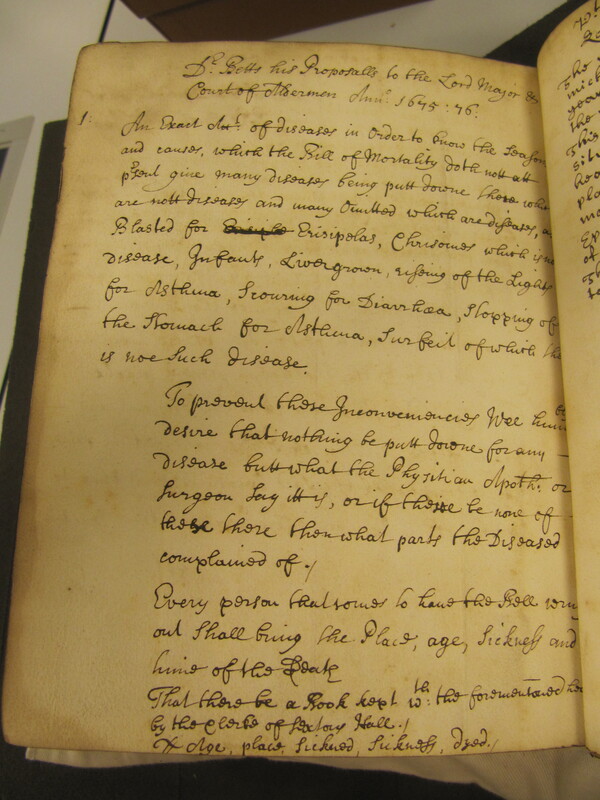 Dr. Betts his Proposalls to the Lord Mayor &
Court of Aldermen Ann: 1675:76.
1. An Exact Act: of diseases in order to know the Season
and causes, which the Bill of Mortality doth nott att
prsent give many diseases being putt downe there wch
are nott diseases and many Omitted which are diseases,
Blasted for Erisipelas, Chrisomes which is no
disease, Infants, Livergrown, riseing of the Lights
for Asthma, Scouring for Diarrhæa, Stopping of
the Stomach for Asthma, Surfeit of which the
is noe Such disease.
To prevent these Inconveniencies Wee hum
desire that nothing be putt downe for any
disease butt what the Physitian Apoth: or
Surgeon Say itt is, or if there be none of
these there then what parts the Diseased
complained of./
Every person that comes to have the Bell
out Shall bring the Place, age, Sickness and
time of the Death
That there be a Book kept wth: the forementioned
by the Clerke of Hall./
Age, place, Sickned, Sickness, dyed./
The
year
the
This